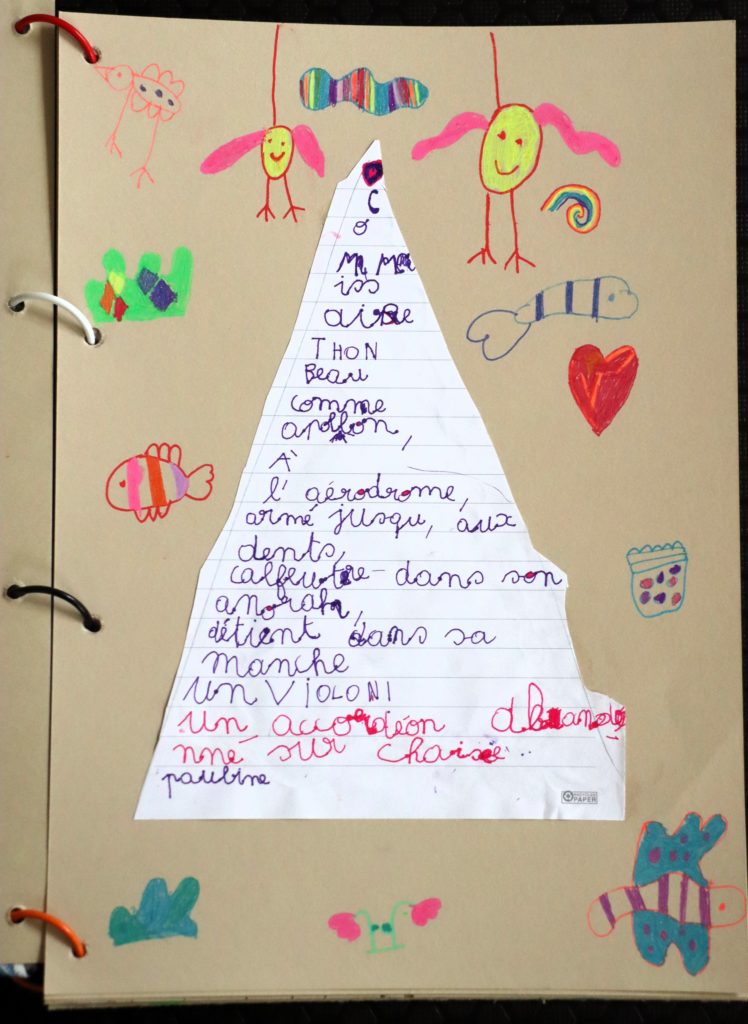 C
o
M Me
iss
aire
THON
Beau
comme
apollon,
À
l'aérodrome,
armé jusqu, aux
dents,
calfeutre- dans son
anorak,
détient dans sa
manche
un VIOLONI
un accordéon abandé
nné sur chaise..
pauline
PAPER